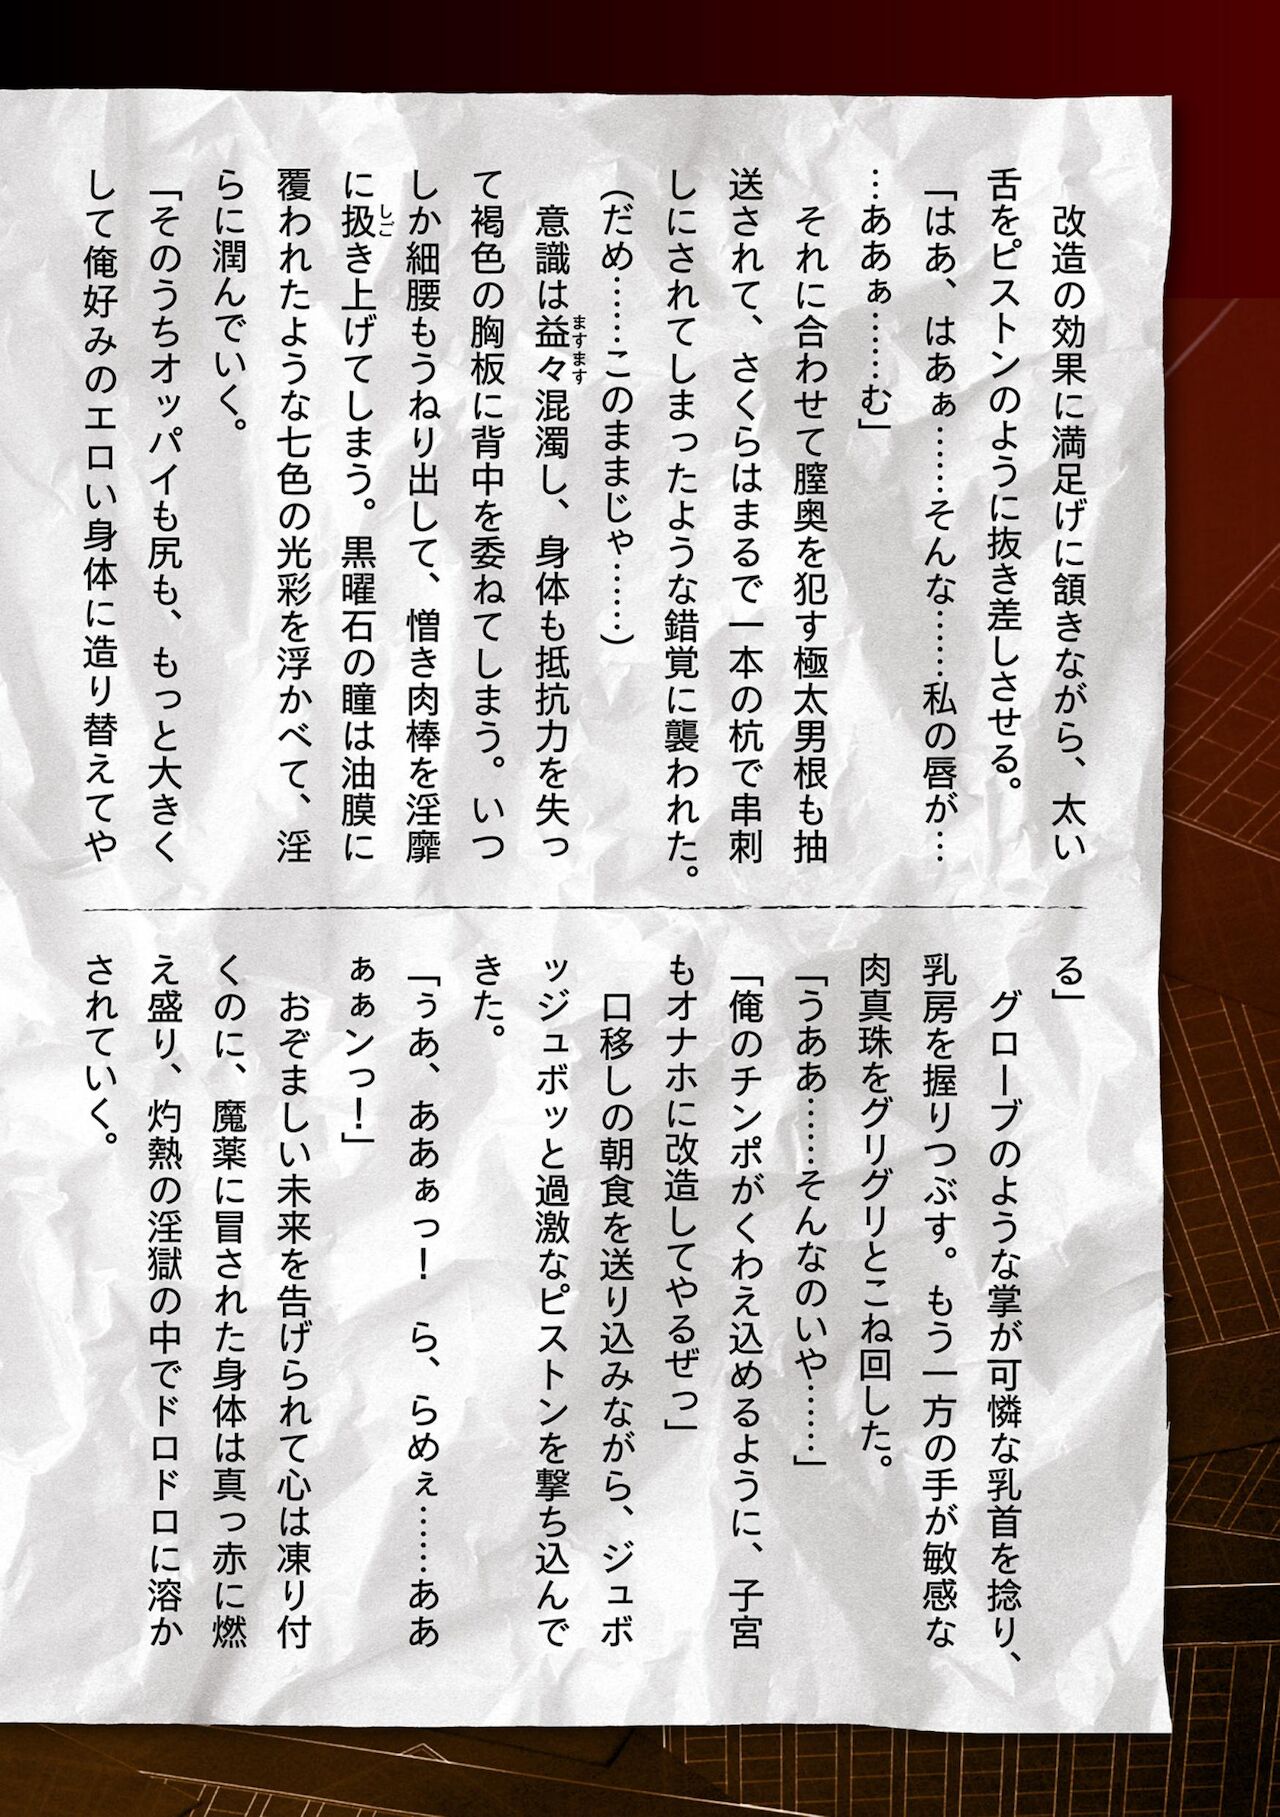 改造の効果に満足げに頷きながら、太い
舌をピストンのように抜き差しさせる。
「はあ、はあぁ……そんな……私の唇が…
…ああぁ……む」
それに合わせて膣奥を犯す極太男根も抽
送されて、さくらはまるで一本の杭で串刺
しにされてしまったような錯覚に襲われた。
(だめ……このままじゃ……)
意識は益々混濁し、身体も抵抗力を失っ
て褐色の胸板に背中を委ねてしまう。いつ
しか細腰もうねり出して、憎き肉棒を淫靡
に扱き上げてしまう。黒曜石の瞳は油膜に
覆われたような七色の光彩を浮かべて、淫
らに潤んでいく。
「そのうちオッパイも尻も、もっと大きく
して俺好みのエロい身体に造り替えてや
る」
グローブのような掌が可憐な乳首を捻り、
乳房を握りつぶす。もう一方の手が敏感な
肉真珠をグリグリとこね回した。
「うああ……そんなのいや……」
「俺のチンポがくわえ込めるように、子宮
もオナホに改造してやるぜっ」
口移しの朝食を送り込みながら、ジュボ
ッジュボッと過激なピストンを撃ち込んで
きた。
「ぅあ、ああぁっ！　ら、らめぇ……ああ
ぁぁンっ！」
おぞましい未来を告げられて心は凍り付
くのに、魔薬に冒された身体は真っ赤に燃
え盛り、灼熱の淫獄の中でドロドロに溶か
されていく。